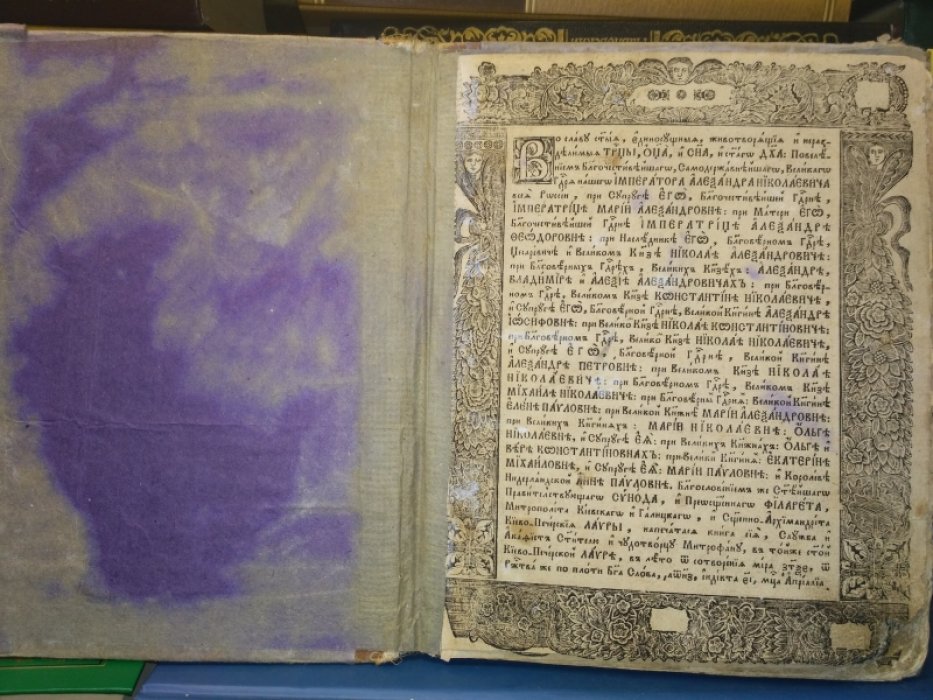 Во славу ст҃ыѧ, є҆диносꙋщныѧ, животворѧ́щїѧ и҆ нераз-
дѣ́лимыѧ ТРЦ҃Ы, Ѻ҆Ц҃А̀, и҆ СН҃А, и҆ ст҃а́гѡ ДХ҃А: Повелѣ́-
нїемъ Благочести́вѣйшагѡ, Самодержа́внѣйшагѡ, Вели́кагѡ
Гдⷭ҇рѧ на́шегѡ І҆МПЕРА́ТОРА А҆ЛЕѮА́НДРА НІКОЛА́ЕВИЧА
всеѧ̀ Рѡссі́и, при Сꙋпрꙋ́гѣ Є҆ГѠ̀, Благочести́вѣйшей Гдⷭ҇рнѣ,
І҆МПЕРАТРИ́ЦѢ МАРІ́И А҆ЛЕѮА́НДРОВНѢ: при Ма́тери Є҆ГѠ̀,
Благочести́вѣйшей Гдⷭ҇рнѣ І҆МПЕРАТРИ́ЦѢ А҆ЛЕѮА́НДРѢ
ѲЕѠ́ДОРОВНѢ: при Наслѣ́дникѣ Є҆ГѠ̀, Благовѣ́рномъ Гдⷭ҇рѣ,
Цесаре́вичѣ и҆ Вели́комъ Кнѧ́зѣ НІКОЛА́Ѣ А҆ЛЕѮА́НДРОВИЧѢ:
при Благовѣ́рныхъ Гдⷭ҇рѣхъ, Вели́кихъ Кнѧзѣ́хъ: А҆ЛЕѮА́НДРѢ,
ВЛАДИ́МІРѢ и҆ А҆ЛЕѮІ́Ѣ А҆ЛЕѮА́НДРОВИЧАХЪ: при Благовѣ́р-
номъ Гдⷭ҇рѣ, Вели́комъ Кнѧ́зѣ КѠНСТАНТІ́НѢ НІКОЛА́ЕВИЧѢ,
и҆ Сꙋпрꙋ́гѣ Є҆ГѠ̀, Благовѣ́рной Гдⷭ҇рнѣ, Вели́кой Кнѧги́нѣ А҆ЛЕѮА́НДРѢ
І҆Ѡ́СИФОВНѢ: при Вели́комъ Кнѧ́зѣ НІКОЛА́Ѣ КѠНСТАНТІ́НОВИЧѢ:
при Благовѣ́рномъ Гдⷭ҇рѣ, Вели́комъ Кнѧ́зѣ НІКОЛА́Ѣ НІКОЛА́ЕВИЧѢ,
и҆ Сꙋпрꙋ́гѣ Є҆ГѠ̀, Благовѣ́рной Гдⷭ҇рнѣ, Вели́кой Кнѧги́нѣ
А҆ЛЕѮА́НДРѢ ПЕТРО́ВНѢ: при Вели́комъ Кнѧ́зѣ НІКОЛА́Ѣ
НІКОЛА́ЕВИЧѢ: при Благовѣ́рномъ Гдⷭ҇рѣ, Вели́комъ Кнѧ́зѣ
МІХАИ́ЛѢ НІКОЛА́ЕВИЧѢ: при Благовѣ́рныхъ Гдⷭ҇рнѧхъ: Вели́кой Кнѧги́нѣ
Є҆ЛЕ́НѢ ПА́ѴЛОВНѢ: при Вели́кой Кнѧжнѣ̀ МАРІ́И А҆ЛЕѮА́НДРОВНѢ:
при Вели́кихъ Кнѧги́нѧхъ: МАРІ́И НІКОЛА́ЕВНѢ: Ѻ҆́ЛЬГѢ
НІКОЛА́ЕВНѢ, и҆ Сꙋпрꙋ́гѣ Є҆Ѧ̀: при Вели́кихъ Кнѧжна́хъ: Ѻ҆́ЛЬГѢ и҆
ВѢ́РѢ КѠНСТАНТІ́НОВНАХЪ: при Вели́кой Кнѧги́нѣ: Є҆КАТЕРІ́НѢ
МІХАИ́ЛОВНѢ, и҆ Сꙋпрꙋ́гѣ Є҆Ѧ̀: МАРІ́И ПА́ѴЛОВНѢ: и҆ Короле́вѣ
Нидерла́ндской А҆́ННѢ ПА́ѴЛОВНѢ. Благослове́нїемъ же Ст҃ѣ́йшагѡ
Прави́тельствꙋющагѡ СѴНО́ДА, и҆ Прешсщ҃е́ннагѡ ФІЛАРЕ́ТА,
Митрополі́та Кі́евскагѡ и҆ Га́лицкагѡ, и҆ Сщ҃е́нно-А҆рхімандрі́та
Кі́ево-Пече́рскїѧ ЛА́ѴРЫ, напеча́тасѧ кни́га сїѧ̀, Слꙋ́жба и҆
А҆ка́ѳистъ Ст҃и́телю и҆ чꙋдотво́рцꙋ Митрофа́нꙋ, въ то́йже ст҃о́й
Кі́ево-Пече́рской ЛА́ѴРѢ, въ лѣ́то ѿ сотворе́нїѧ мі́ра ҂зтѯе, ѿ
Рж҇тва̀ же по пло́ти Бг҃а Сло́ва, ҂аѡн҃з, і҆ндікта є҃і, мц҇а А҆прі́ллїа.